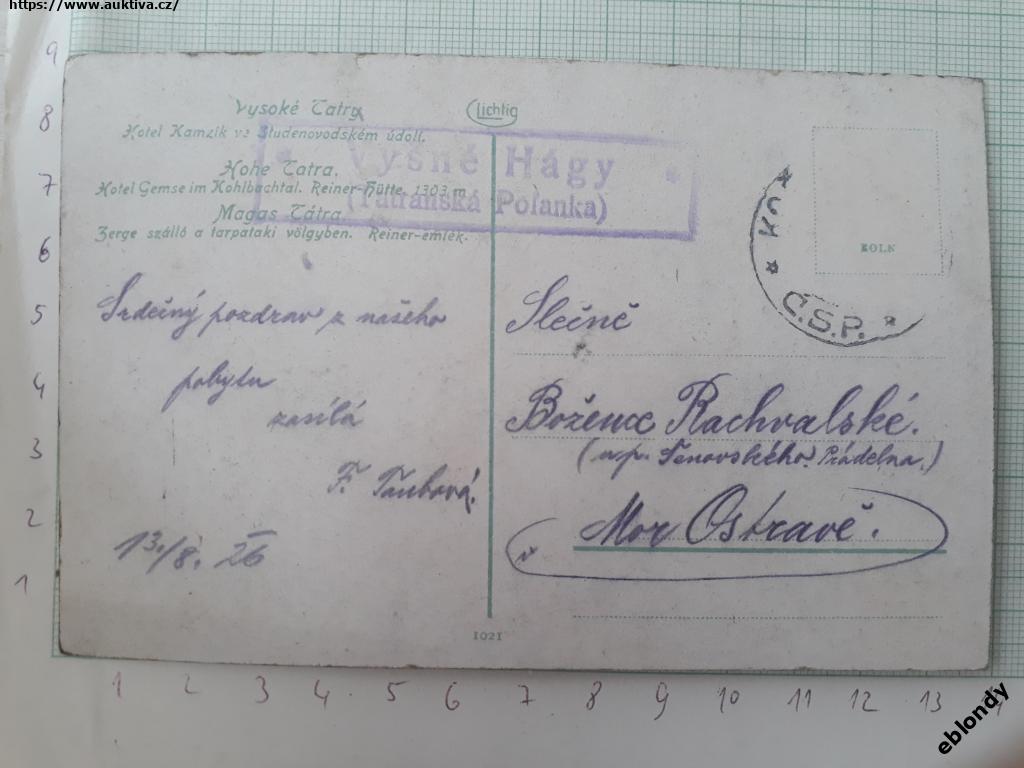 https://www.auktiva.cz/
Vysoké Tatry
Hotel Kamzík ve Studenovodském údolí.
Hohe Tatra.
Hotel Gemse im Kohlbachtal. Reiner-Hütte 1303 m
Magas Tátra.
Zerge szálló a tarpataki völgyben. Reiner-emlék.
Lichtig
* Vyšné Hágy *
(Tatranská Polanka)
* KČS * Č.S.P. *
KOLK
Srdečný pozdrav z našeho
pobytu
zasílá
F.
13./8. 26
Slečně
Božena Rachvalské.
Prádelna.)
v Mor Ostravě.
1021
9
8
7
6
5
4
3
2
1
1 2 3 4 5 6 7 8 9 10 11 12 13
eblondy